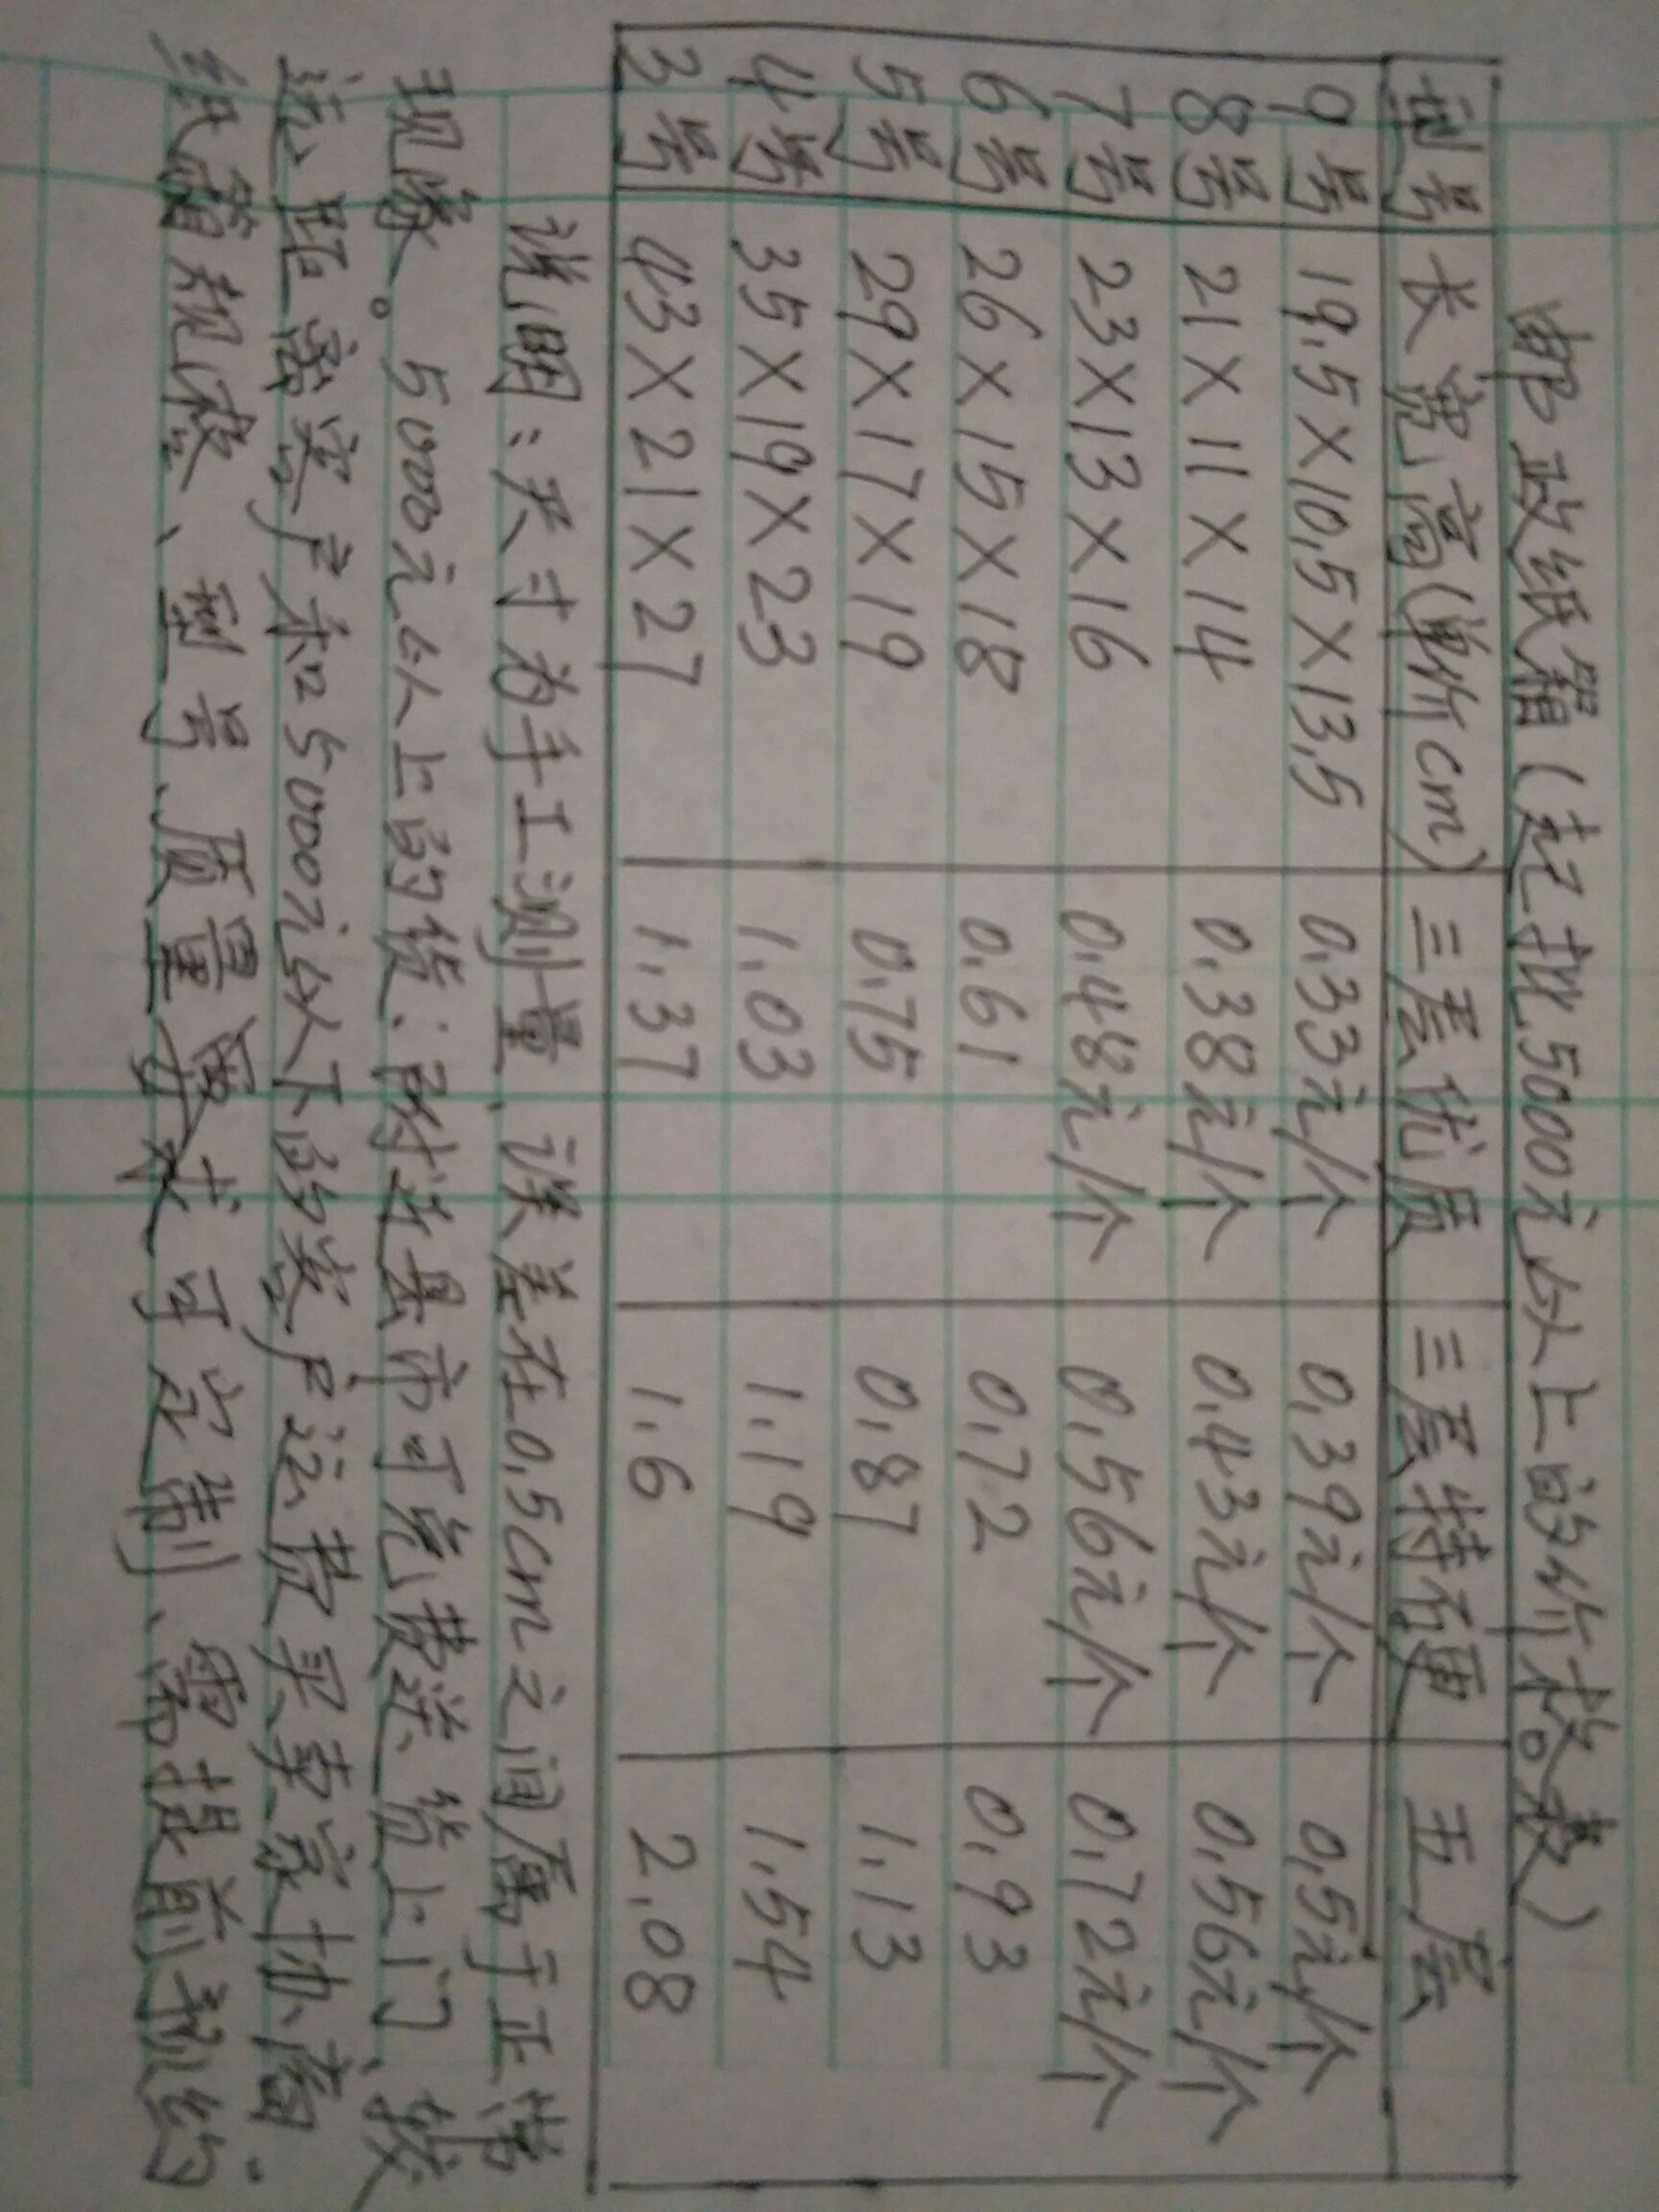 邮政纸箱(起批5000元以上的价格表)
型号 长宽高(单价cm) 三层优质 三层特硬 五层
9号 19.5×10.5×13.5 0.33元/个 0.39元/个 0.5元/个
8号 21×11×14 0.38元/个 0.43元/个 0.56元/个
7号 23×13×16 0.48元/个 0.56元/个 0.72元/个
6号 26×15×18 0.61 0.72 0.93
5号 29×17×19 0.75 0.87 1.13
4号 35×19×23 1.03 1.19 1.54
3号 43×21×27 1.37 1.6 2.08
说明:尺寸为手工测量、误差在0.5cm之间属于正常
现象。5000元以上的货:附近县市可免费送货上门、
远距离客户和5000元以下的客户运费买卖家协商.
纸箱规格、型号、质量要求可定制、需提前预约